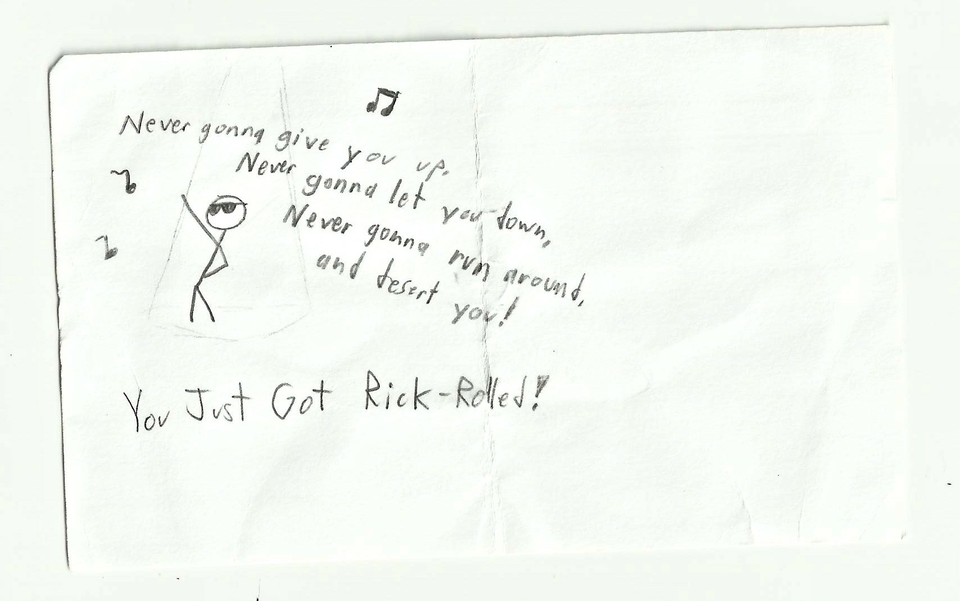 Never gonna give you up,
Never gonna let you down,
Never gonna run around,
and desert you!
You Just Got Rick-Rolled!